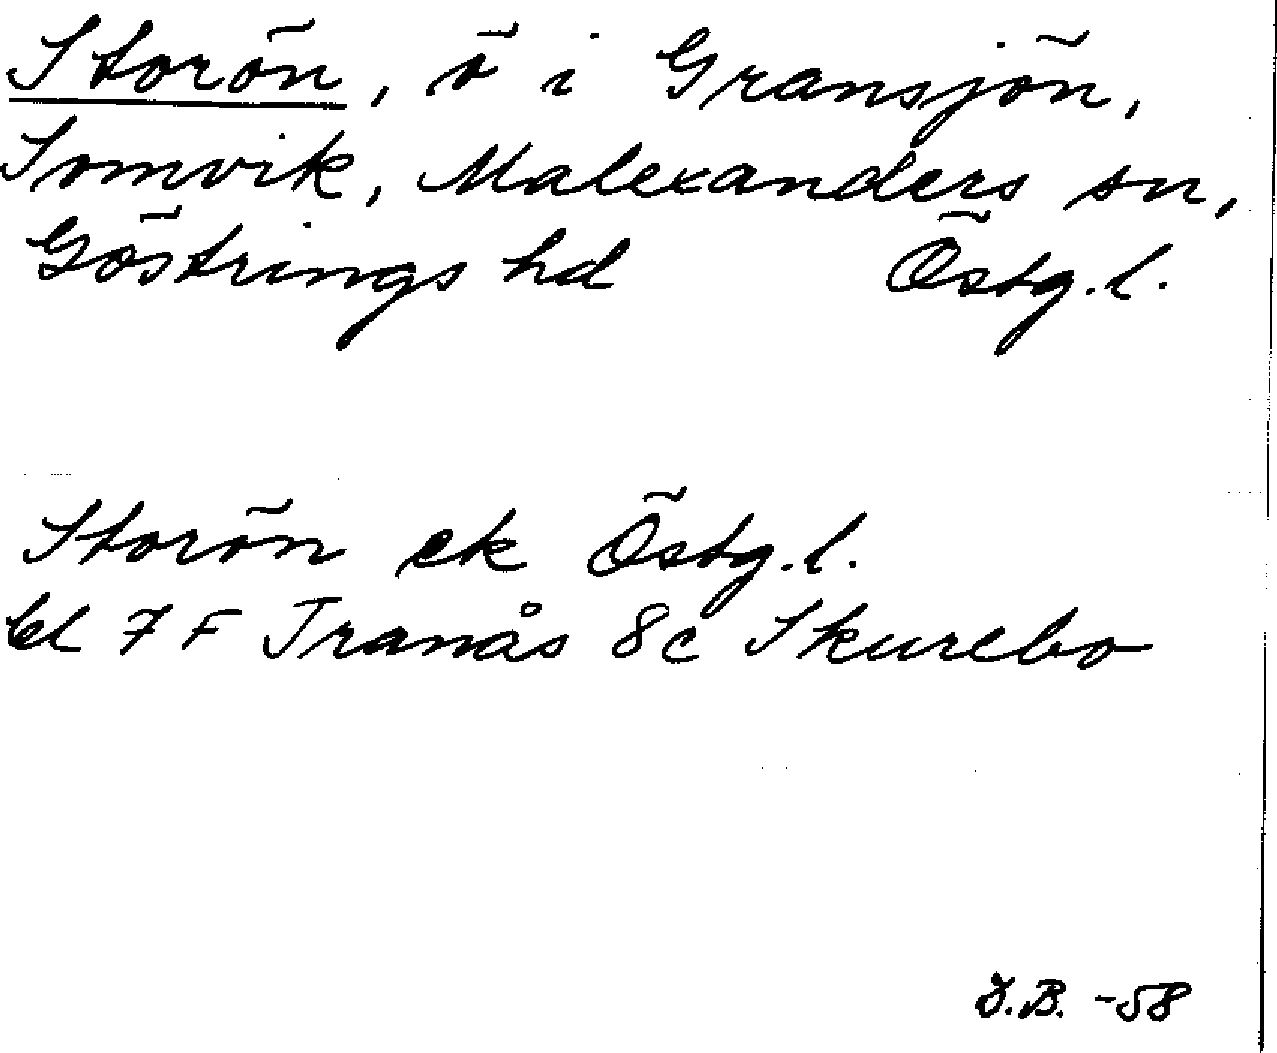 Storön, ö i Gransjön,
Somvik, Malexanders sn,
Göstrings hd Östg.l.
Storön ek Östg.l.
bl 7 F Tranås 8c Skurebo
J.B. -58